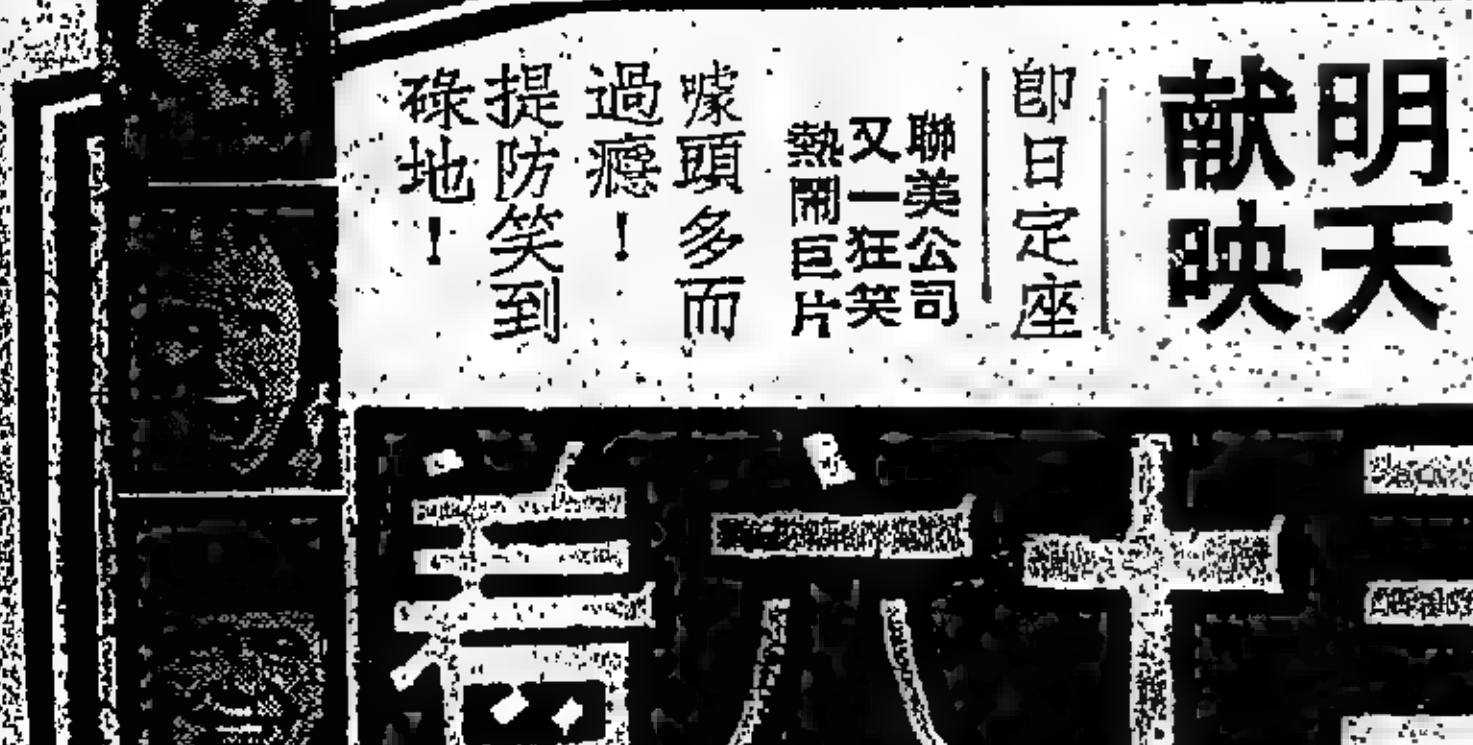 明天
献映
即日定座
聯美公司
又一狂笑
熱鬧巨片
噱頭多而
過癮！
提防笑到
碌地！
三十六着